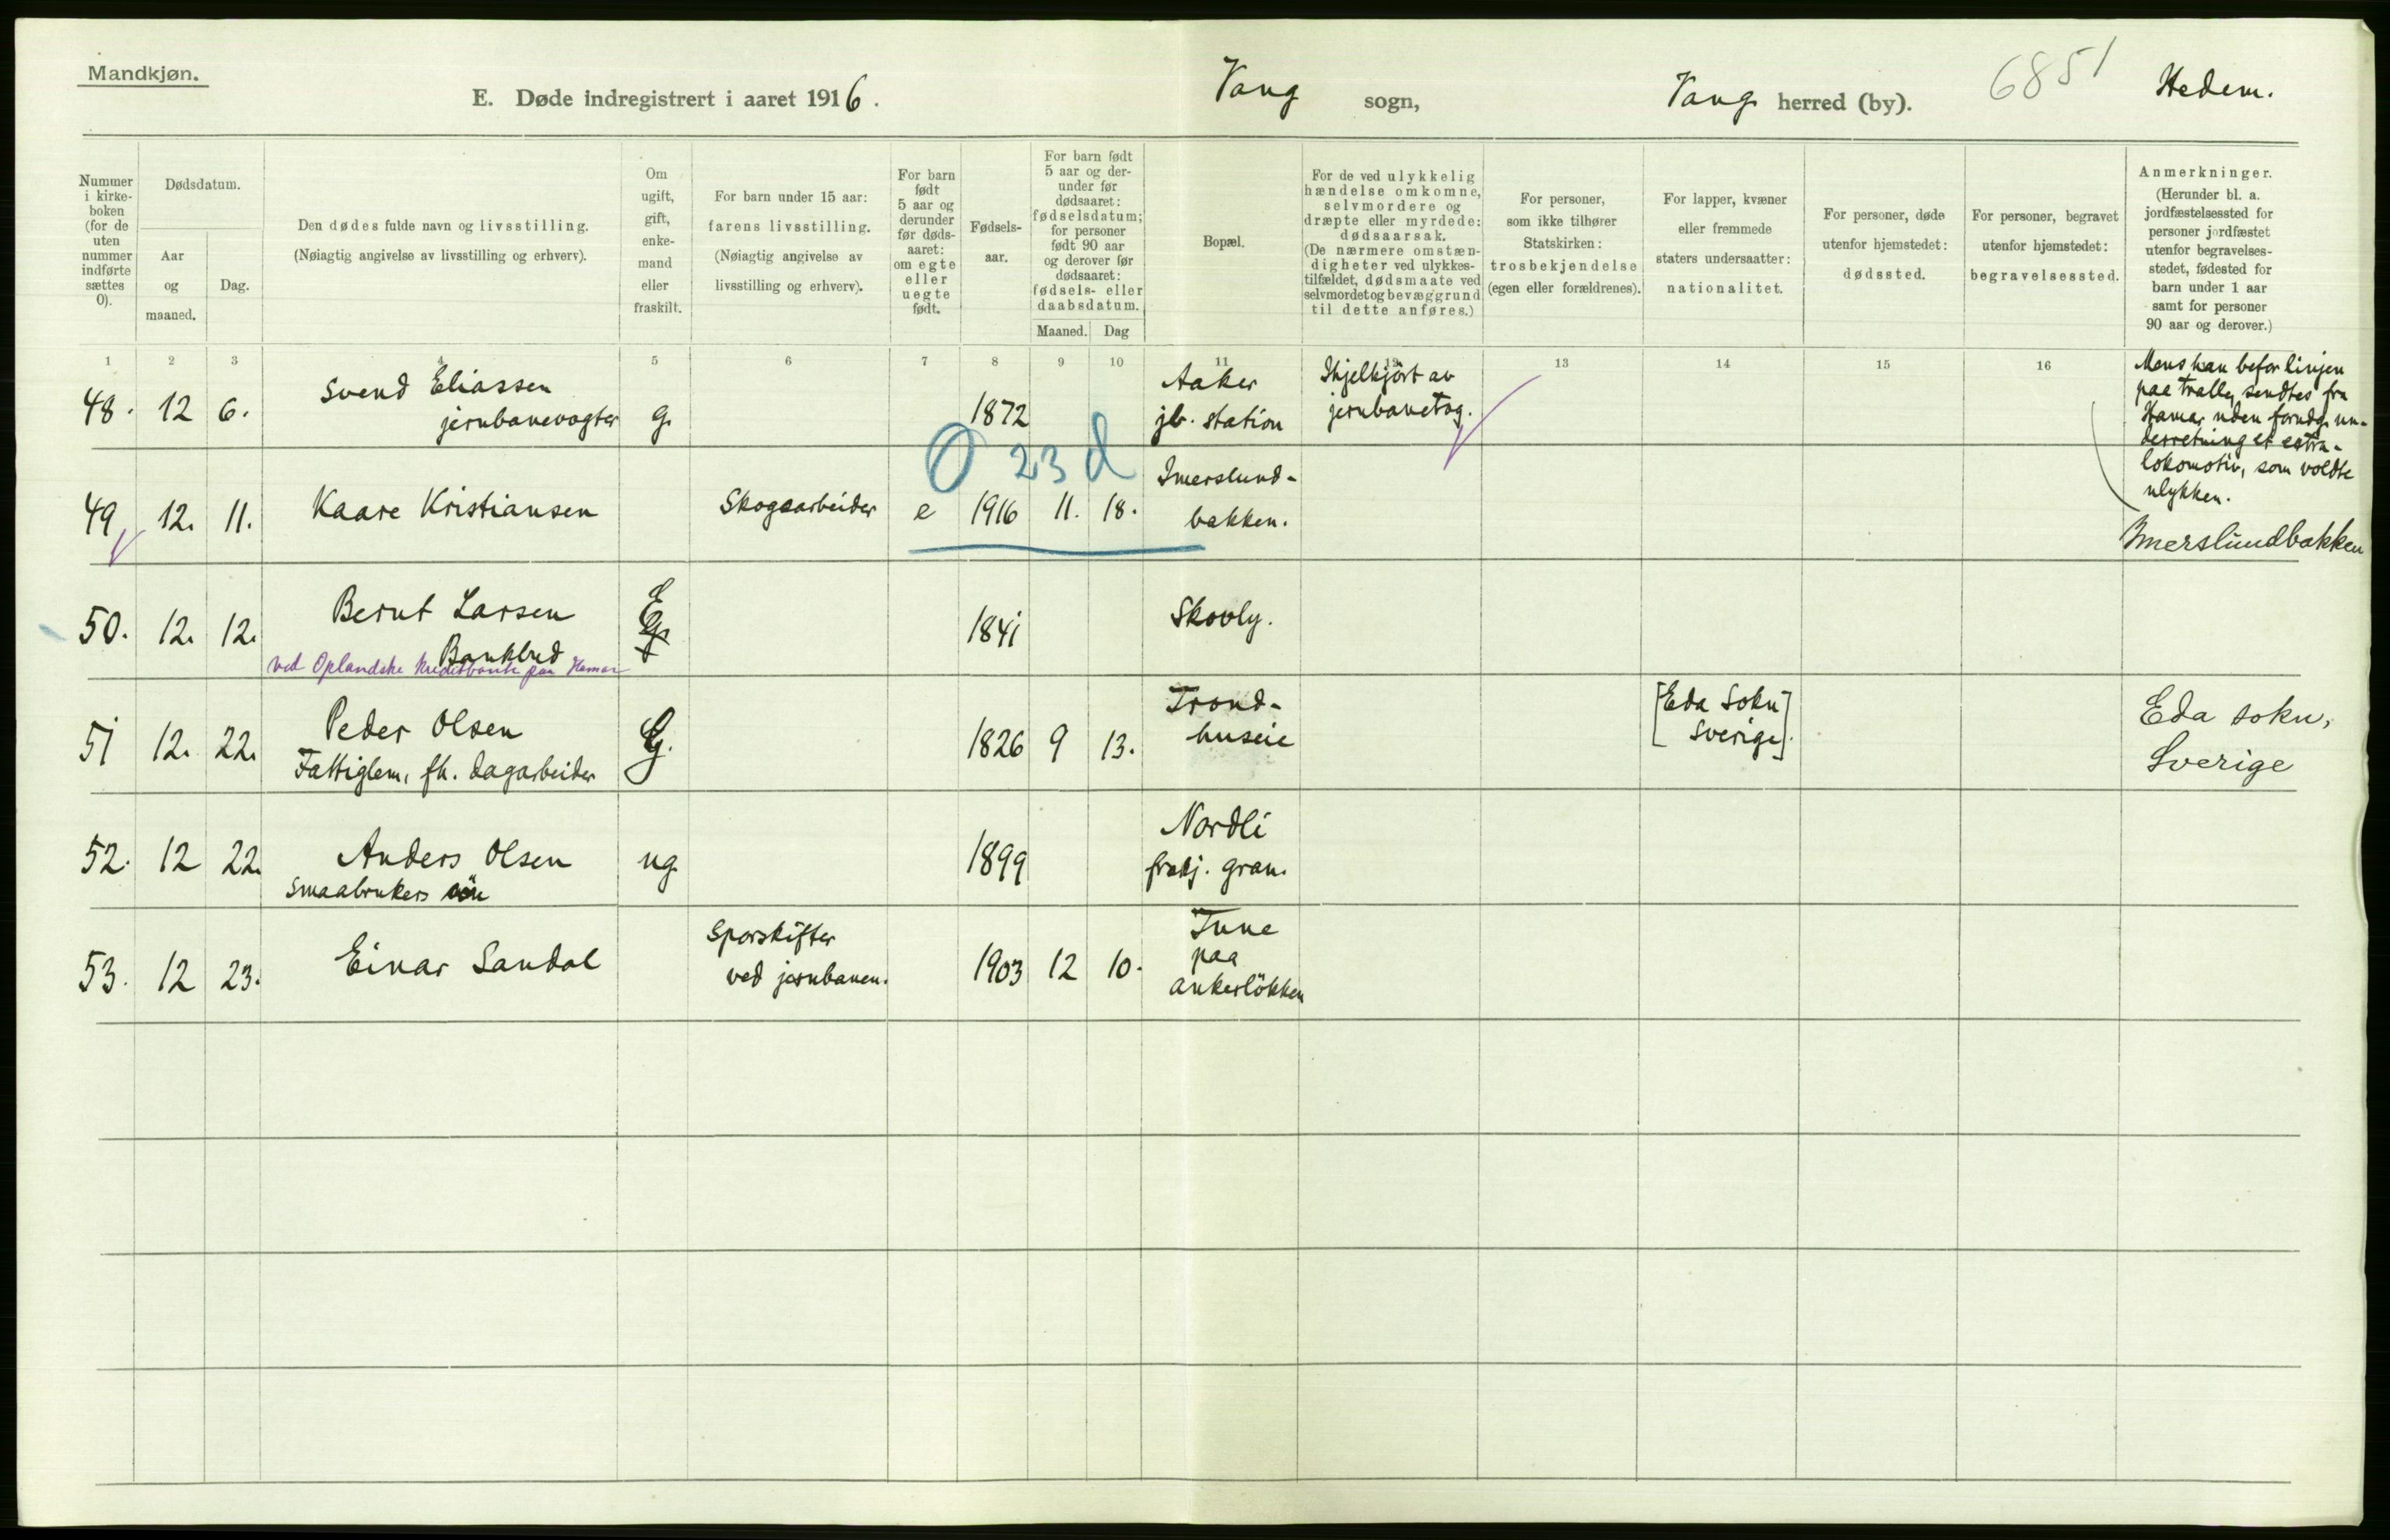 Mandkjøn.
E. Døde indregistrert i aaret 1916.
Vang sogn,
Vang herred (by).
6851
Hedem.
Nummer
i kirke-
boken
(for de
uten
nummer
indførte
sættes
0).
Dødsdatum.
Aar
og
maaned.
Dag.
Den dødes fulde navn og livsstilling.
(Nøiagtig angivelse av livsstilling og erhverv).
Om
ugift,
gift,
enke-
mand
eller
fraskilt.
For barn under 15 aar:
farens livsstilling.
(Nøiagtig angivelse av
livsstilling og erhverv).
For barn
født
5 aar og
derunder
før døds-
aaret:
om egte
eller
uegte
født.
Fødsels-
aar.
For barn født
5 aar og der-
under før
dødsaaret:
fødselsdatum;
for personer
født 90 aar
og derover før
dødsaaret:
fødsels- eller
daabsdatum.
Maaned. Dag
Bopæl.
For de ved ulykkelig
hændelse omkomne,
selvmordere og
dræpte eller myrdede:
dødsaarsak.
(De nærmere omstæn-
digheter ved ulykkes-
tilfældet, dødsmaate ved
selvmordet og bevæggrund
til dette anføres.)
For personer,
som ikke tilhører
Statskirken:
trosbekjendelse
(egen eller forældrenes).
For lapper, kvæner
eller fremmede
staters undersaatter:
nationalitet.
For personer, døde
utenfor hjemstedet:
dødssted.
For personer, begravet
utenfor hjemstedet:
begravelsessted.
Anmerkninger.
(Herunder bl. a.
jordfæstelsessted for
personer jordfæstet
utenfor begravelses-
stedet, fødested for
barn under 1 aar
samt for personer
90 aar og derover.)
1 2 3 4 5 6 7 8 9 10 11 12 13 14 15 16
48. 12 6. Svend Eliassen
jernbanevogter g. 1872
Aaker
jb. station
Ihjelkjørt av
jernbanetog.
Mens han befor linjen
paa tralle, sendtes fra
Hamar uden forudg. un-
derretning et extra-
lokomotiv, som voldte
ulykken.
0 23 d
49 12. 11. Kaare Kristiansen Skogsarbeider e 1916 11. 18.
Imerslund-
bakken.
Imerslundbakken
50. 12. 12. Bernt Larsen
Bankbud
ved Oplandske Kreditbank paa Hamar
E
1841 Skovly.
51 12. 22. Peder Olsen
Fattiglem, fh. dagarbeider
G. 1826 9 13.
Trond-
huseie
[Eda Sokn
Sverige].
Eda sokn,
Sverige
52. 12 22. Anders Olsen
Smaabrukers søn
ug. 1899
Nordli
frakj. gran.
53. 12 23. Einar Sandal
Sporskifter
ved jernbanen.
1903 12 10.
Tune
paa
Ankerløkken